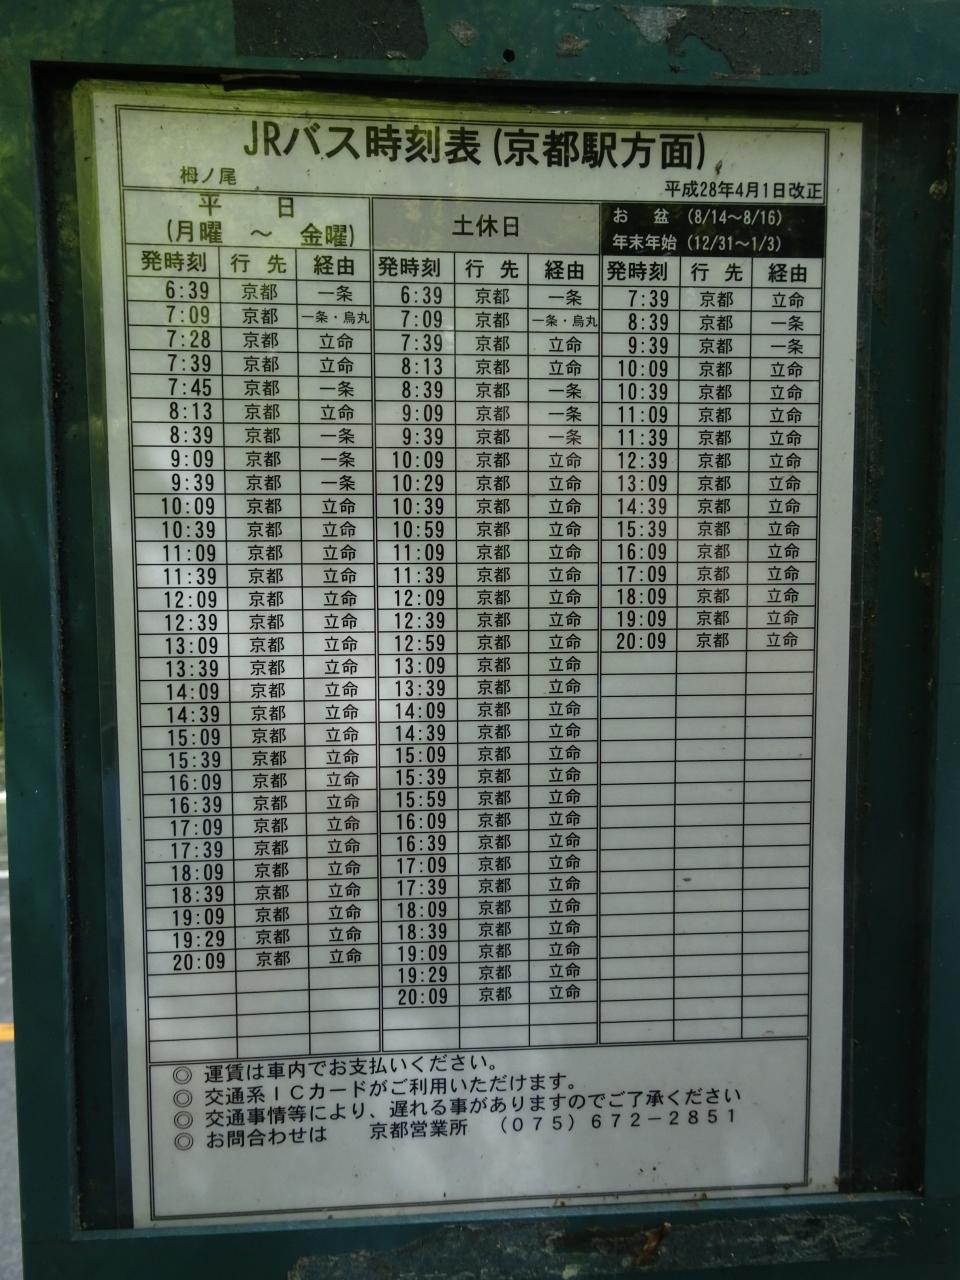 JRバス時刻表(京都駅方面)
栂ノ尾
平成28年4月1日改正
平 日 土休日 お 盆 (8/14～8/16)
(月曜 ～ 金曜) 年末年始 (12/31～1/3)
発時刻 行 先 経由 発時刻 行 先 経由 発時刻 行 先 経由
6:39 京都 一条 6:39 京都 一条 7:39 京都 立命
7:09 京都 一条・烏丸 7:09 京都 一条・烏丸 8:39 京都 一条
7:28 京都 立命 7:39 京都 立命 9:39 京都 一条
7:39 京都 立命 8:13 京都 立命 10:09 京都 立命
7:45 京都 一条 8:39 京都 一条 10:39 京都 立命
8:13 京都 立命 9:09 京都 一条 11:09 京都 立命
8:39 京都 一条 9:39 京都 一条 11:39 京都 立命
9:09 京都 一条 10:09 京都 立命 12:39 京都 立命
9:39 京都 一条 10:29 京都 立命 13:09 京都 立命
10:09 京都 立命 10:39 京都 立命 14:39 京都 立命
10:39 京都 立命 10:59 京都 立命 15:39 京都 立命
11:09 京都 立命 11:09 京都 立命 16:09 京都 立命
11:39 京都 立命 11:39 京都 立命 17:09 京都 立命
12:09 京都 立命 12:09 京都 立命 18:09 京都 立命
12:39 京都 立命 12:39 京都 立命 19:09 京都 立命
13:09 京都 立命 12:59 京都 立命 20:09 京都 立命
13:39 京都 立命 13:09 京都 立命
14:09 京都 立命 13:39 京都 立命
14:39 京都 立命 14:09 京都 立命
15:09 京都 立命 14:39 京都 立命
15:39 京都 立命 15:09 京都 立命
16:09 京都 立命 15:39 京都 立命
16:39 京都 立命 15:59 京都 立命
17:09 京都 立命 16:09 京都 立命
17:39 京都 立命 16:39 京都 立命
18:09 京都 立命 17:09 京都 立命
18:39 京都 立命 17:39 京都 立命
19:09 京都 立命 18:09 京都 立命
19:29 京都 立命 18:39 京都 立命
20:09 京都 立命 19:09 京都 立命
19:29 京都 立命
20:09 京都 立命
◎ 運賃は車内でお支払いください。
◎ 交通系ICカードがご利用いただけます。
◎ 交通事情等により、遅れる事がありますのでご了承ください
◎ お問合わせは 京都営業所 (075)672-2851